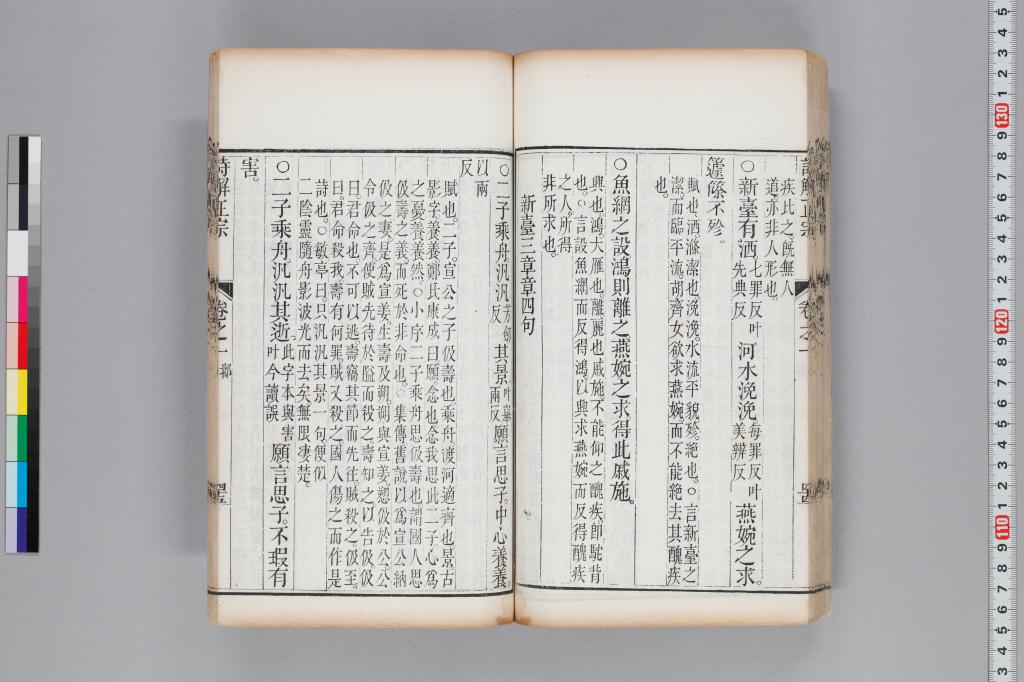 疾比之旣無人
道亦非人形也
○新臺有洒七罪反叶先典反河水浼浼每罪反叶美辨反燕婉之求。
籧篨不殄。
賦也洒滌潔也浼浼水流平貌殄絶也。○言新臺之
潔而臨平流胡齊女欲求燕婉而不能絶去其醜疾
也。
○魚網之設鴻則離之燕婉之求得此戚施。
興也鴻大雁也離麗也戚施不能仰之醜疾即駝背
也。○言設魚網而反得鴻以興求燕婉而反得醜疾
之人所得
非所求也。
新臺三章章四句
○二子乘舟汎汎芳劔反其景叶舉兩反願言思子。中心養養。
以兩
反
賦也。二子。宣公之子伋壽也乘舟渡河適齊也景古
影字養養鄭氏康成曰願念也念我思此二子心爲
之憂養養然。○小序二子乘舟思伋壽也謂國人思
伋壽之義而死於非命也。○集傳舊說以爲宣公納
伋之妻是爲宣姜生壽及朔。朔與宣姜愬伋於公公
令伋之齊使賊先待於隘而殺之壽知之以告伋伋
曰君命也不可以逃。壽竊其節而先往。賊殺之伋至。
曰。君命殺我壽有何罪。賊又殺之國人傷之而作是
詩也。○敏亭曰只汎汎其景一句便似
二陰靈隨舟影波光而去矣無限凄楚。
○二子乘舟。汎汎其逝。此字本與害叶今讀誤願言思子。不瑕有
害。
詩解正宗 卷之一 鄘
詩解正宗 卷之一